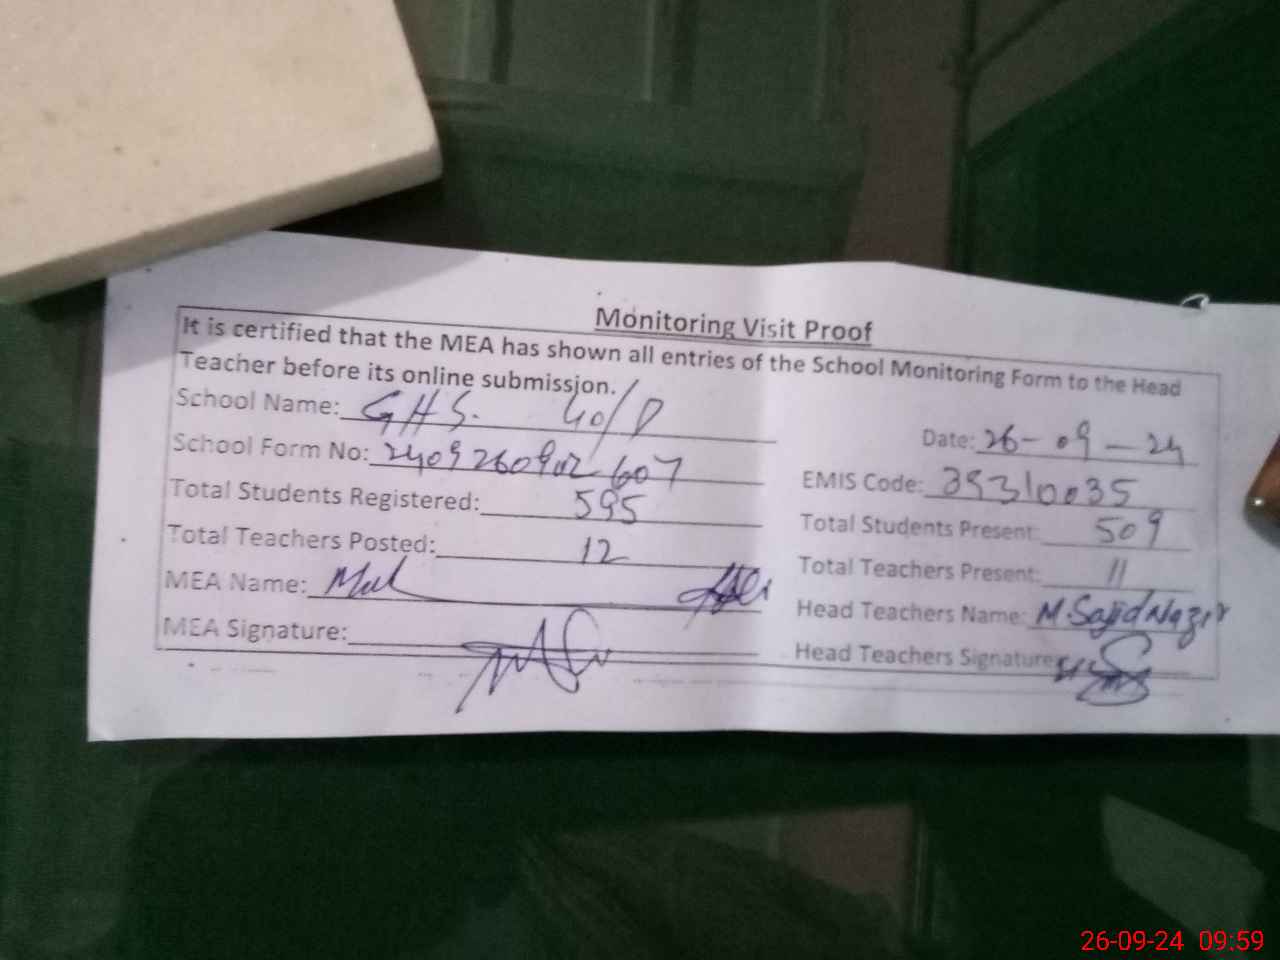 Monitoring Visit Proof
It is certified that the MEA has shown all entries of the School Monitoring Form to the Head
Teacher before its online submission.
School Name: GHS. 40/D
Date: 26-09-24
School Form No: 2409260902607
EMIS Code: 39310035
Total Students Registered: 595
Total Students Present: 509
Total Teachers Posted: 12
Total Teachers Present: 11
MEA Name:
Head Teachers Name: M.Sajid Nazir
MEA Signature:
Head Teachers Signature:
26-09-24 09:59